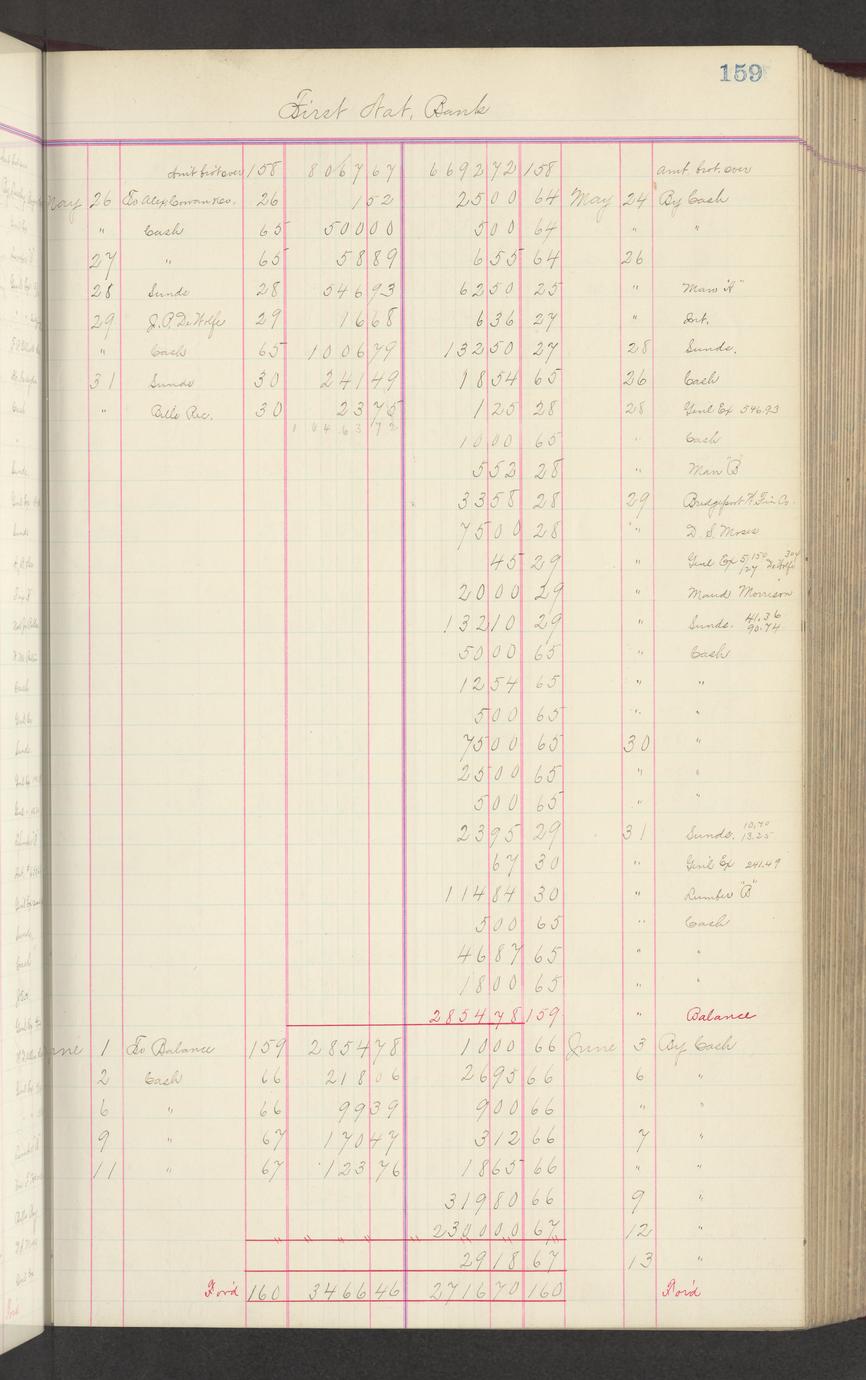 159
First Nat. Bank
Amt brot over 158 8067 67 6692 72 158 amt. brot. over
May 26 To Alex Cowan & Co. 26 1 52 25 00 64 May 24 By Cash
" Cash 65 500 00 5 00 64 " "
27 " 65 58 89 6 55 64 26
28 Sunds 28 546 93 62 50 25 " Man "A"
29 J. P. DeWolfe 29 16 68 6 36 27 " Int.
" Cash 65 1006 79 132 50 27 28 Sunds.
31 Sunds 30 241 49 18 54 65 26 Cash
" Bills Rec. 30 23 75 1 25 28 28 Genl Ex 546.93
10 00 65 " Cash
5 52 28 " Man "B"
33 58 28 29 Bridgeport
75 00 28 " D. S. Moses
45 29 " Genl Ex DeWolfe
20 00 29 " Maud Morrison
132 10 29 " Sunds. 41.36 90.74
50 00 65 " Cash
12 54 65 " "
5 00 65 " "
75 00 65 30 "
25 00 65 " "
5 00 65 " "
23 95 29 31 Sunds. 10.70 13.25
67 30 " Genl Ex 241.49
114 84 30 " Lumber "B"
5 00 65 " Cash
46 87 65 " "
18 00 65 " "
2854 78 159 " Balance
June 1 To Balance 159 2854 78 10 00 66 June 3 By Cash
2 Cash 66 218 06 26 95 66 6 "
6 " 66 99 39 9 00 66 " "
9 " 67 170 47 3 12 66 7 "
11 " 67 123 76 18 65 66 " "
319 80 66 9 "
2300 00 67 12 "
29 18 67 13 "
For'd 160 3466 46 2716 70 160 For'd